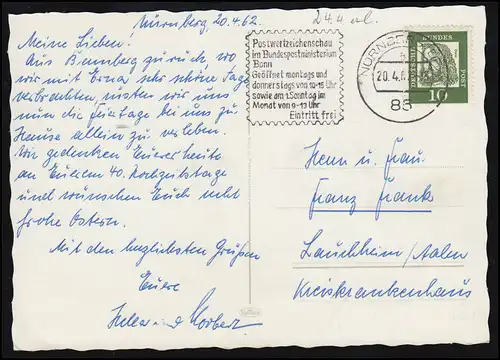 Nürnberg, 20.4.62.
Meine Lieben!
Aus Bamberg zurück, wo
wir mit Erna sehr schöne Tage
verbrachten, rüsten wir uns
nun die Feiertage bei uns zu
Hause allein zu verleben.
Wir gedenken Euerer heute
an Euerem 40. Hochzeitstage
und wünschen Euch recht
frohe Ostern.
Mit den herzlichsten Grüßen
Euere
und Norbert
Postwertzeichenschau
im Bundespostministerium
Bonn
Geöffnet montags und
donnerstags von 10-15 Uhr
sowie am 1.Sonntag im
Monat von 9-13 Uhr
Eintritt frei
NÜRNBERG
20.4.6
85
DEUTSCHE BUNDESPOST
10
Herrn u. Frau
Franz Frank
Lauchheim/Aalen
Kreiskrankenhaus